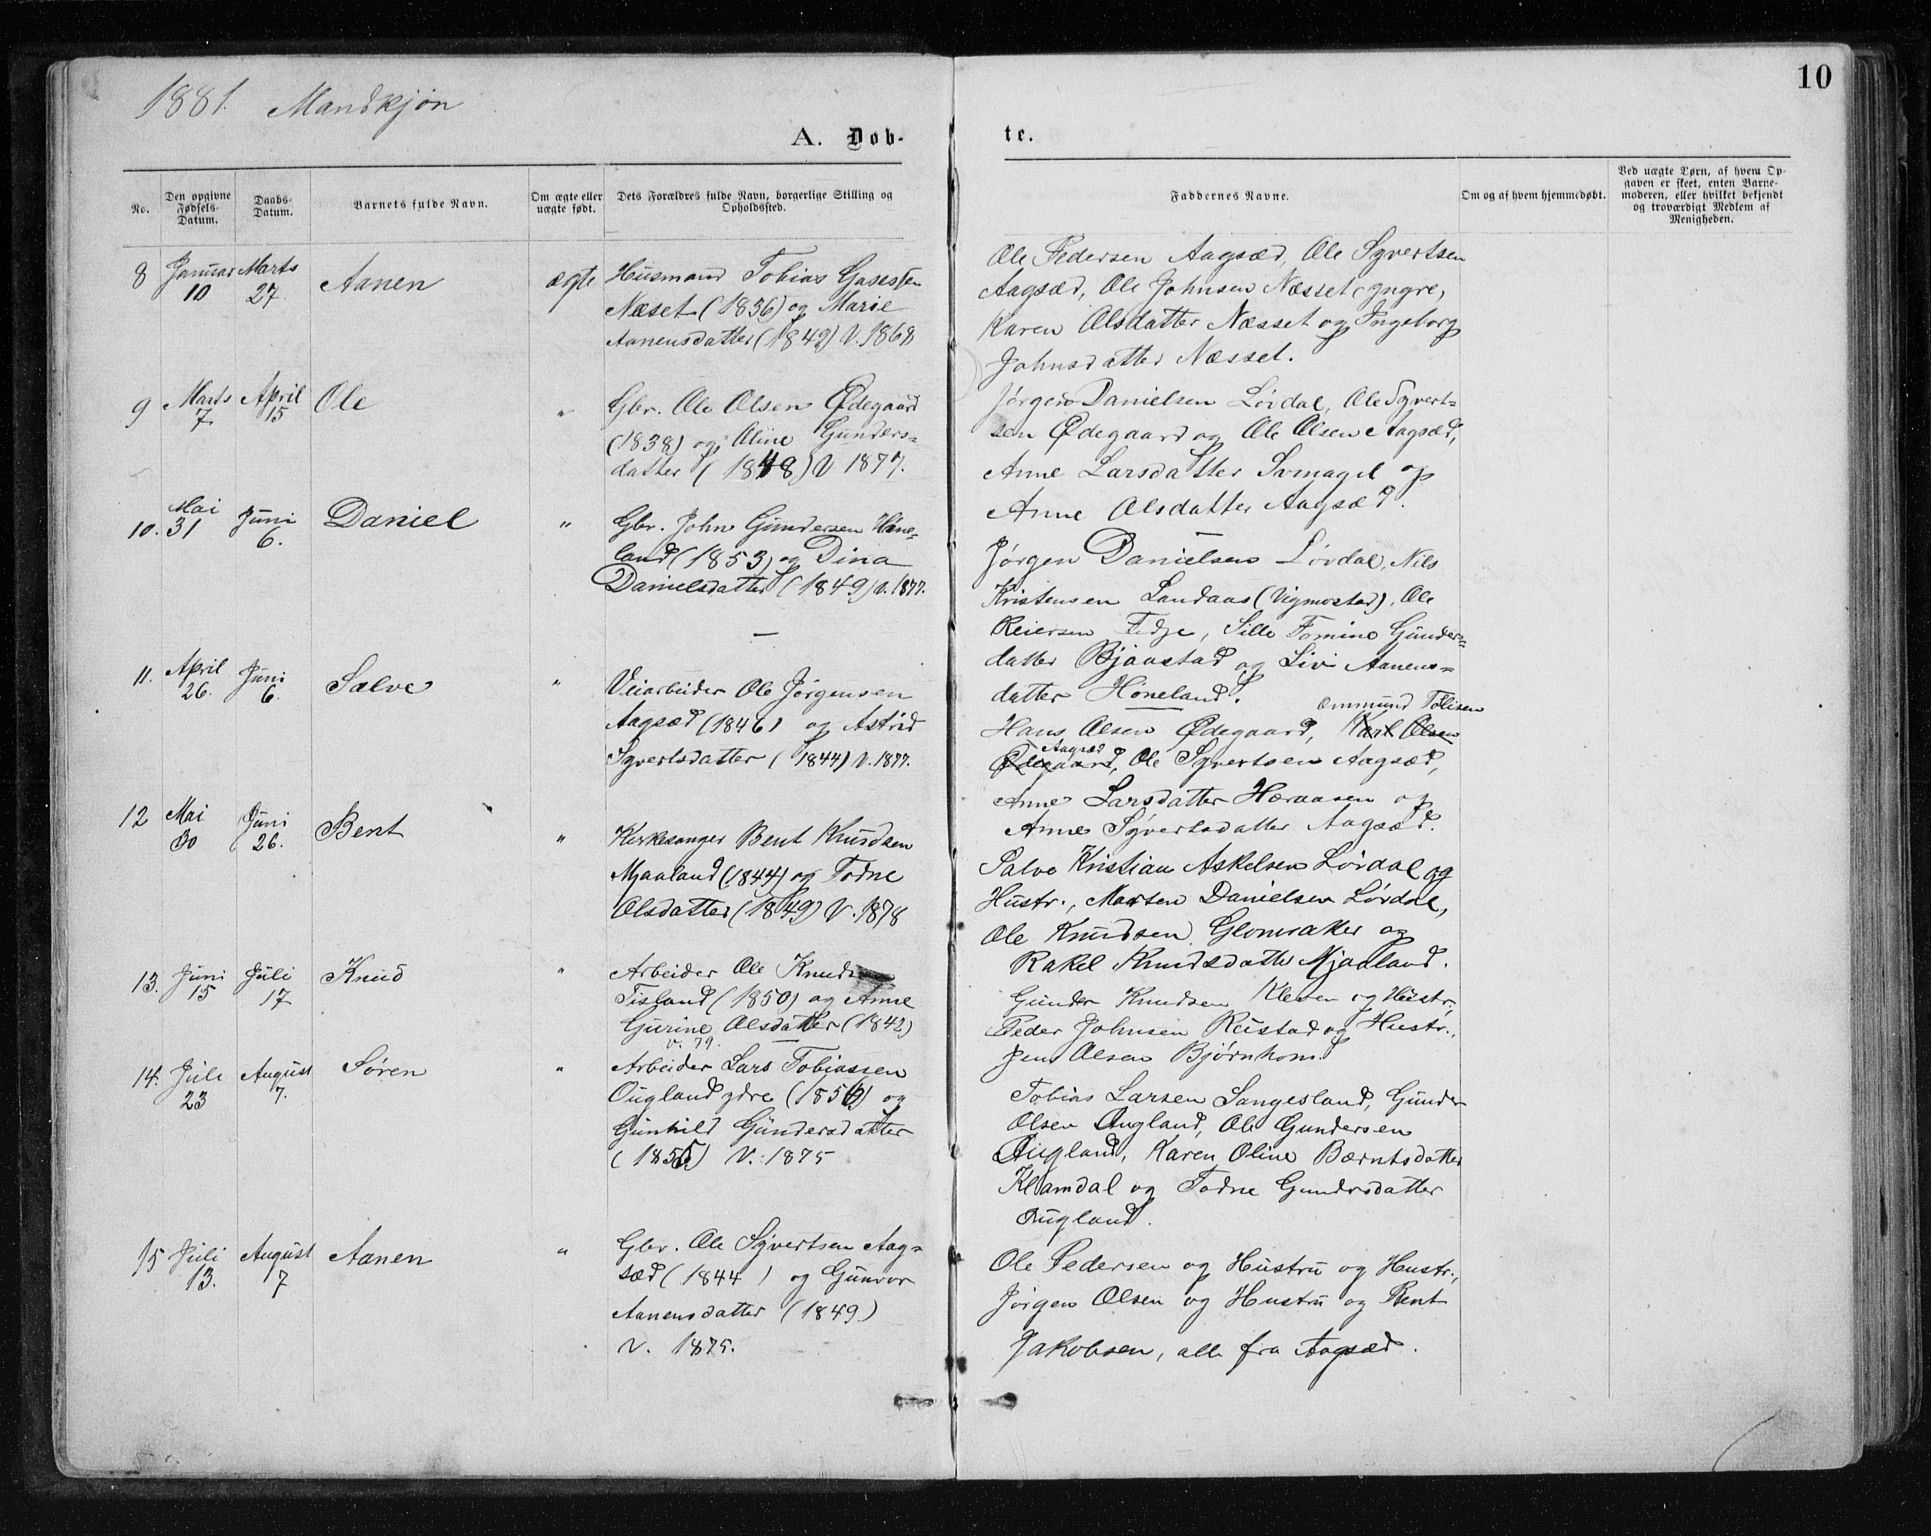 1881. Mandkjøn
10
A. Døb-
te.
No.
Den opgivne Fødsels-Datum.
Daabs-Datum.
Barnets fulde Navn.
Om ægte eller uægte født.
Dets Forældres fulde Navn, borgerlige Stilling og Opholdssted.
Faddernes Navne.
Om og af hvem hjemmedøbt.
Ved uægte Børn, af hvem Op-
gaven er skeet, enten Barne-
moderen, eller hvilket bekjendt
og troværdigt Medlem af
Menigheden.
8 Januar 10 Marts 27. Aanen ægte
Husmand Tobias
Næset (1836) og Marie
Aanensdatter (1842) V. 1868
Ole Pedersen Aagsæd, Ole Syvertsen
Aagsæd, Ole Johnsen Næsset yngre,
Karen Olsdatter Næsset og Ingeborg
Johnsdatter Næsset.
9 Marts 7. April 15 Ole "
Gbr. Ole Olsen Ødegaard
(1838) og Oline Gunders-
datter (1848) V 1877.
Jørgen Danielsen Lørdal, Ole Syvert-
sen Ødegaard og Ole Olsen Aagsæd,
Anne Larsdatter og
Anne Olsdatter Aagsæd.
10. Mai 31 Juni 6. Daniel "
Gbr. John Gundersen Høne-
land (1853) og Dina
Danielsdatter (1849) V. 1877.
Jørgen Danielsen Lørdal, Nils
Kristensen Landaas (Vigmostad), Ole
Reiersen Fedje, Sille Tomine Gunders-
datter Bjaastad og Liv Aanens-
datter Høneland.
11. April 26. Juni 6. Salve "
Veiarbeider Ole Jørgensen
Aagsæd (1846) og Astrid
Syvertsdatter (1844) V. 1877.
Ommund Tollisen
Hans Olsen Ødegaard, Karl Olsen
Aagsæd
Ødegaard, Ole Syvertsen Aagsæd,
Anne Larsdatter Høraasen og
Anne Syvertsdatter Aagsæd.
12 Mai 30 Juni 26. Bent "
Kirkesanger Bent Knudsen
Mjaaland (1844) og Todne
Olsdatter (1849) V. 1878
Salve Kristian Askelsen Lørdal og
Hustr., Marten Danielsen Lørdal,
Ole Knudsen Glomsaker og
Rakel Knudsdatter Mjaaland.
13. Juni 15 Juli 17 Knud "
Arbeider Ole Knudsen
Tisland (1850) og Anne
Gurine Olsdatter (1842)
V. 79.
Gunder Knudsen Kleven og Hustr.,
Peder Johnsen Reustad og Hustr.,
Jens Olsen Bjørnhom
14. Juli 23 August 7. Søren "
Arbeider Lars Tobiassen
Ougland ydre (1856) og
Gunhild Gundersdatter
(1855) V. 1875
Tobias Larsen Sangesland, Gunder
Olsen Ougland, Ole Gundersen
Ougland, Karen Oline Bærntsdatter
Klamdal og Todne Gundrsdatter
Ougland.
15 Juli 13. August 7 Aanen "
Gbr. Ole Syvertsen Aag-
sæd (1844) og Gunvor
Aanensdatter (1849)
V. 1875.
Ole Pedersen og Hustru og Hustr.,
Jørgen Olsen og Hustru og Bent
Jakobsen, alle fra Aagsæd.